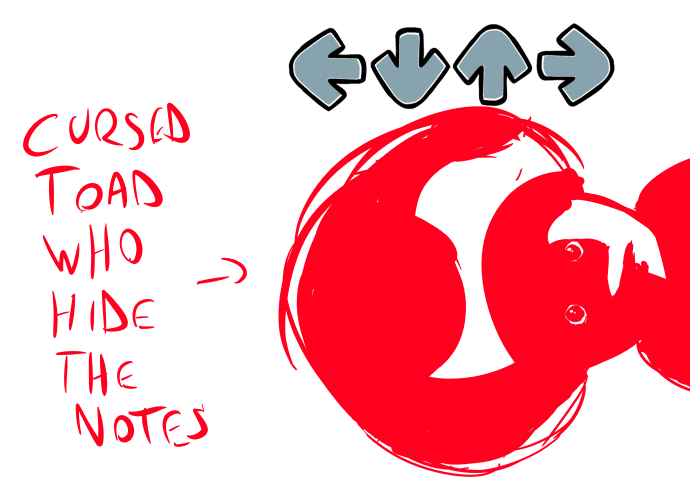 CURSED
TOAD
WHO
HIDE
THE
NOTES